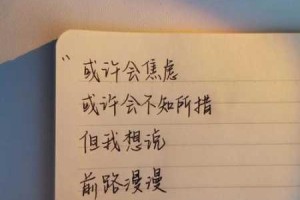 "
或许会焦虑
或许会不知所措
但我想说
前路漫漫